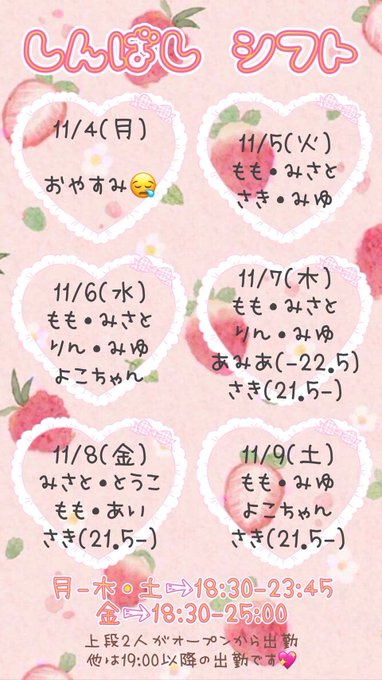 しんばし シフト
11/4(月)
おやすみ😪
11/5(火)
もも・みさと
さき・みゆ
11/6(水)
もも・みさと
りん・みゆ
よこちゃん
11/7(木)
もも・みさと
りん・みゆ
あみあ(-22.5)
さき(21.5-)
11/8(金)
みさと・とうこ
もも・あい
さき(21.5-)
11/9(土)
もも・みゆ
よこちゃん
さき(21.5-)
月-木・土➾18:30-23:45
金➾18:30-25:00
上段2人がオープンから出勤
他は19:00以降の出勤です💖